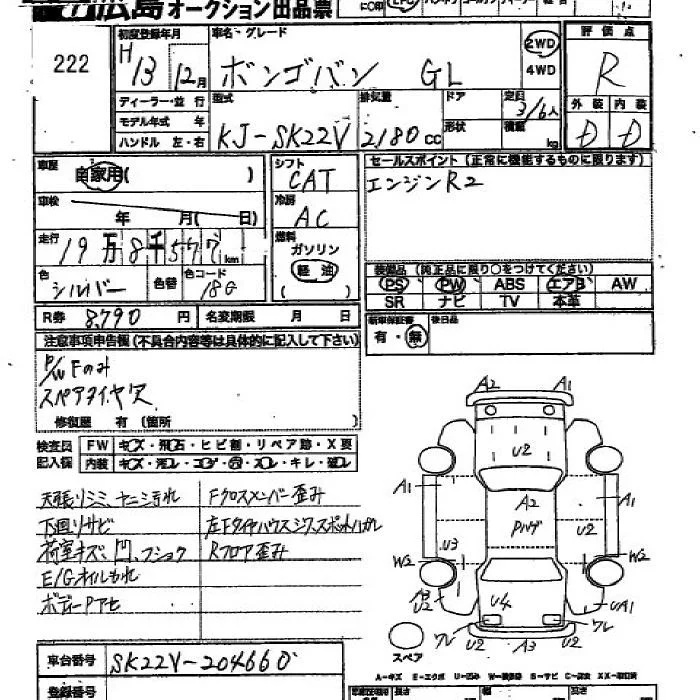 広島オークション出品票
222
初度登録年月
H 13 12月
車名・グレード
ボンゴバン GL
2WD
4WD
評価点
R
外装 内装
D D
ディーラー・並行
モデル年式 年
ハンドル 左・右
型式
KJ-SK22V
排気量
2180 cc
ドア
形状
定員
3/6人
積載
kg
車歴
自家用( )
車検
年 月( 日)
走行
19万8千577km
色
シルバー
色替
色コード
18G
シフト
CAT
冷房
AC
燃料
ガソリン
軽油
セールスポイント(正常に機能するものに限ります)
エンジンR2
装備品(純正品に限り○をつけてください)
PS PW ABS エアB AW
SR ナビ TV 本革
R券 8,790 円
名変期限 月 日
新車保証書
有・無
後日品
注意事項申告欄(不具合内容等は具体的に記入して下さい)
P/W Fのみ
スペアタイヤ欠
修復歴 有 (箇所
検査員
記入欄
FW キズ・飛石・ヒビ割・リペア跡・X要
内装
天張りシミ、ヤニ汚れ
下回りサビ
荷室キズ、凹、フショク
E/Gオイルもれ
ボディーPアセ
Fクロスメンバー歪み
左Fタイヤハウスシワ、スポットハガレ
Rフロア歪み
A2 A1
U2
A1 A2 A1
Pハゲ U2
U3
W2 W2
U2 U4 UA1
ワレ U2 A3 U2 ワレ
スペア
A-キズ E-エクボ U-凹み W-補修跡 S-サビ C-腐食 XX-取替済
車台番号
SK22V-204660
登録番号
長さ 幅 高さ